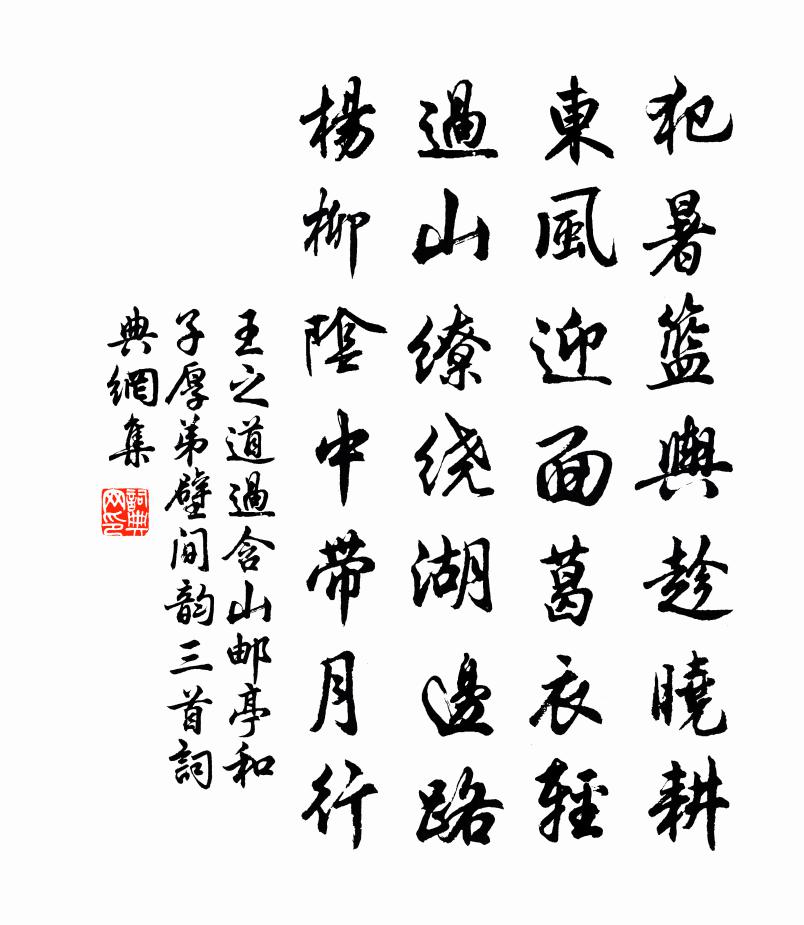 犯暑籃輿趁曉耕
東風迎面葛衣輕
過山繚绕湖邊路
楊柳陰中带月行
王之道過含山邮亭和
子厚弟壁间韵三首詞
典網集
詞典网印